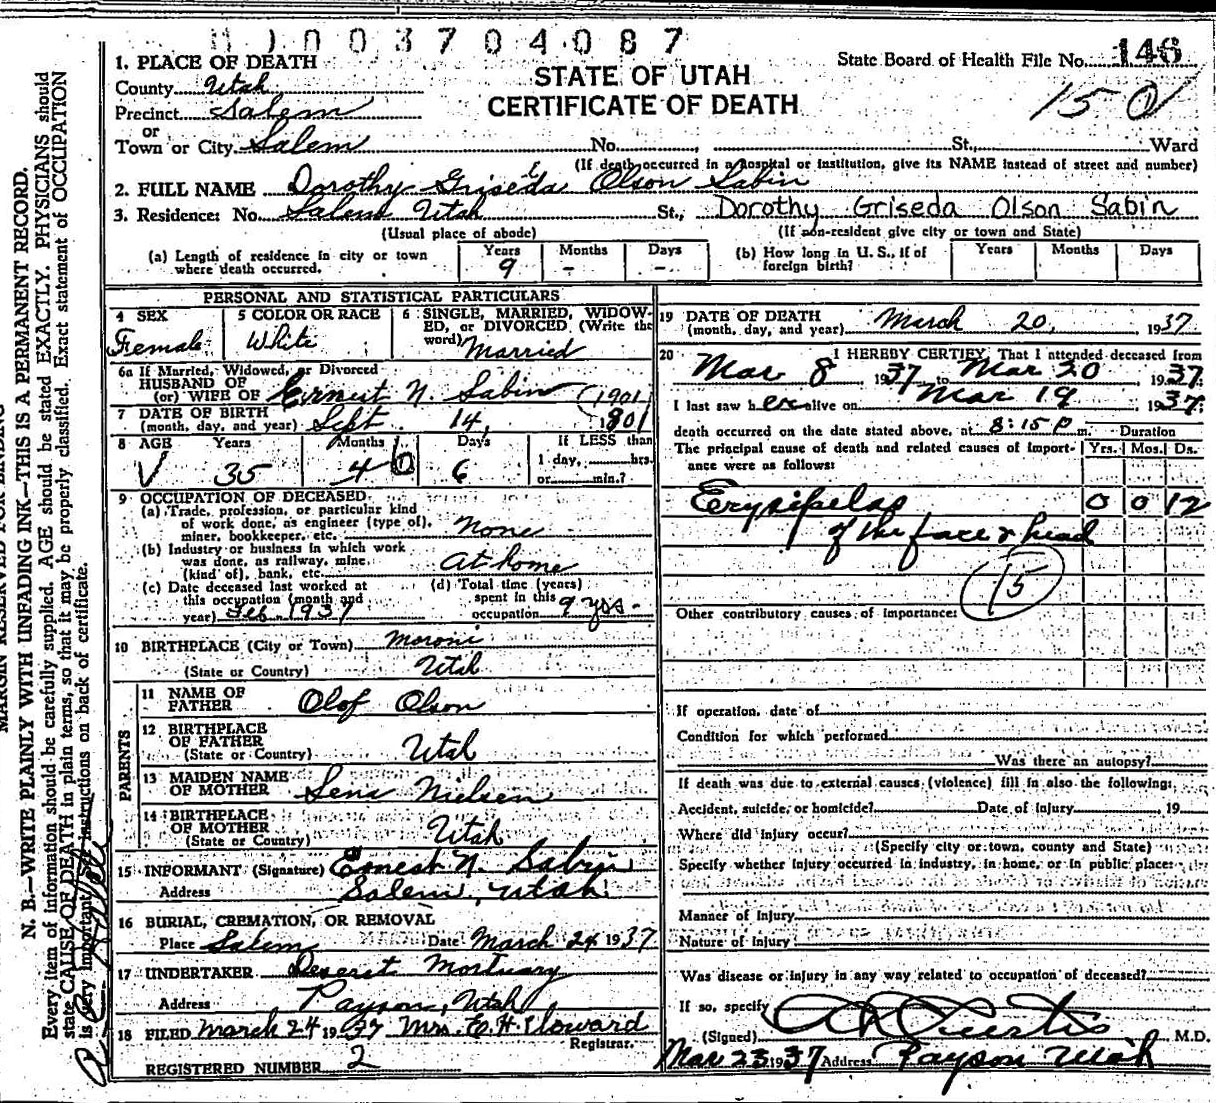 0 0 3 7 0 4 0 8 7
1. PLACE OF DEATH
County Utah
Precinct Salem
or
Town or City Salem No. St., Ward
STATE OF UTAH
CERTIFICATE OF DEATH
State Board of Health File No. 146
15 0 1
(If death occurred in a hospital or institution, give its NAME instead of street and number)
2. FULL NAME Dorothy Griseda Olson Sabin
3. Residence: No. Salem Utah St., Dorothy Griseda Olson Sabin
(Usual place of abode) (If non-resident give city or town and State)
(a) Length of residence in city or town where death occurred. Years 9 Months - Days -
(b) How long in U. S., if of foreign birth? Years Months Days
PERSONAL AND STATISTICAL PARTICULARS
4 SEX Female
5 COLOR OR RACE White
6 SINGLE, MARRIED, WIDOWED, or DIVORCED (Write the word) Married
6a If Married, Widowed, or Divorced
HUSBAND OF
(or) WIFE OF Ernest N. Sabin
7 DATE OF BIRTH
(month, day, and year) Sept. 14, 1801 (1901
8 AGE Years 35 Months 4 6 Days 6
If LESS than
1 day, hrs.
or min.?
9 OCCUPATION OF DECEASED
(a) Trade, profession, or particular kind
of work done, as engineer (type of),
miner, bookkeeper, etc. None
(b) Industry or business in which work
was done, as railway, mine
(kind of), bank, etc. At home
(c) Date deceased last worked at
this occupation (month and
year) Feb 1937
(d) Total time (years)
spent in this
occupation 9 yrs-
10 BIRTHPLACE (City or Town) Moroni
(State or Country) Utah
PARENTS
11 NAME OF
FATHER Olof Olson
12 BIRTHPLACE
OF FATHER
(State or Country) Utah
13 MAIDEN NAME
OF MOTHER Sena Nielsen
14 BIRTHPLACE
OF MOTHER
(State or Country) Utah
15 INFORMANT (Signature) Ernest N. Sabin
Address Salem, Utah.
16 BURIAL, CREMATION, OR REMOVAL
Place Salem Date March 24 1937
17 UNDERTAKER Deseret Mortuary
Address Payson, Utah
18 FILED March 24 1937 Mrs. E. H. Howard
Registrar.
REGISTERED NUMBER 2
19 DATE OF DEATH
(month, day, and year) March 20, 1937
20 I HEREBY CERTIFY, That I attended deceased from
Mar 8 1937 to Mar 20 1937
I last saw her alive on Mar 19 1937
death occurred on the date stated above, at 8:15 P m. Duration
The principal cause of death and related causes of importance were as follows: Yrs. Mos. Ds.
Erysipelas 0 0 12
of the face & head
15
Other contributory causes of importance:
If operation, date of
Condition for which performed
Was there an autopsy?
If death was due to external causes (violence) fill in also the following:
Accident, suicide, or homicide? Date of Injury 19
Where did injury occur?
(Specify city or town, county and State)
Specify whether injury occurred in industry, in home, or in public place:
Manner of Injury
Nature of Injury
Was disease or injury in any way related to occupation of deceased?
If so, specify
(Signed) Curtis M.D.
Mar 23 1937 Address Payson Utah
MARGIN RESERVED FOR BINDING
N. B.—WRITE PLAINLY WITH UNFADING INK—THIS IS A PERMANENT RECORD.
Every item of information should be carefully supplied. AGE should be stated EXACTLY. PHYSICIANS should
state CAUSE OF DEATH in plain terms, so that it may be properly classified. Exact statement of OCCUPATION
is very important. See instructions on back of certificate.